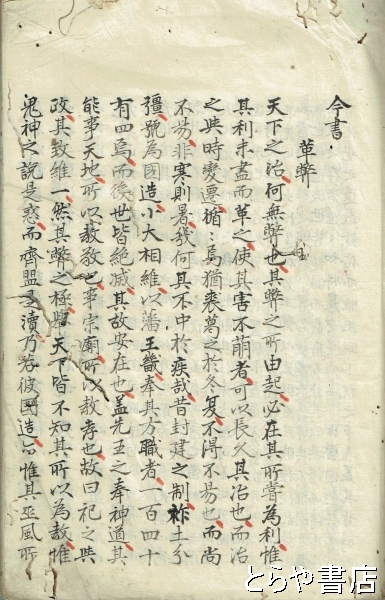 今書
革弊
天下之治何無弊也其弊之所由起必在其所嘗為利惟
其利未盡而革之使其害不萌者可以長久其治也而治
之與時變遷循〻焉猶裘葛之於冬夏不得不易也而尚
不易非寒則暑幾何其不中於疾哉昔封建之制祚土分
疆號為國造小大相維以藩王畿奉其方職者一百四十
有四焉而後世皆絶滅其故安在也盖先王之奉神道其
能事天地所以教敬也事宗廟所以教孝也故曰祀之與
政其致維一然其弊之極與天下皆不知其所以為教惟
鬼神之說是惑而齊盟瀆乃若彼國造亦惟其巫風所
とらや書店